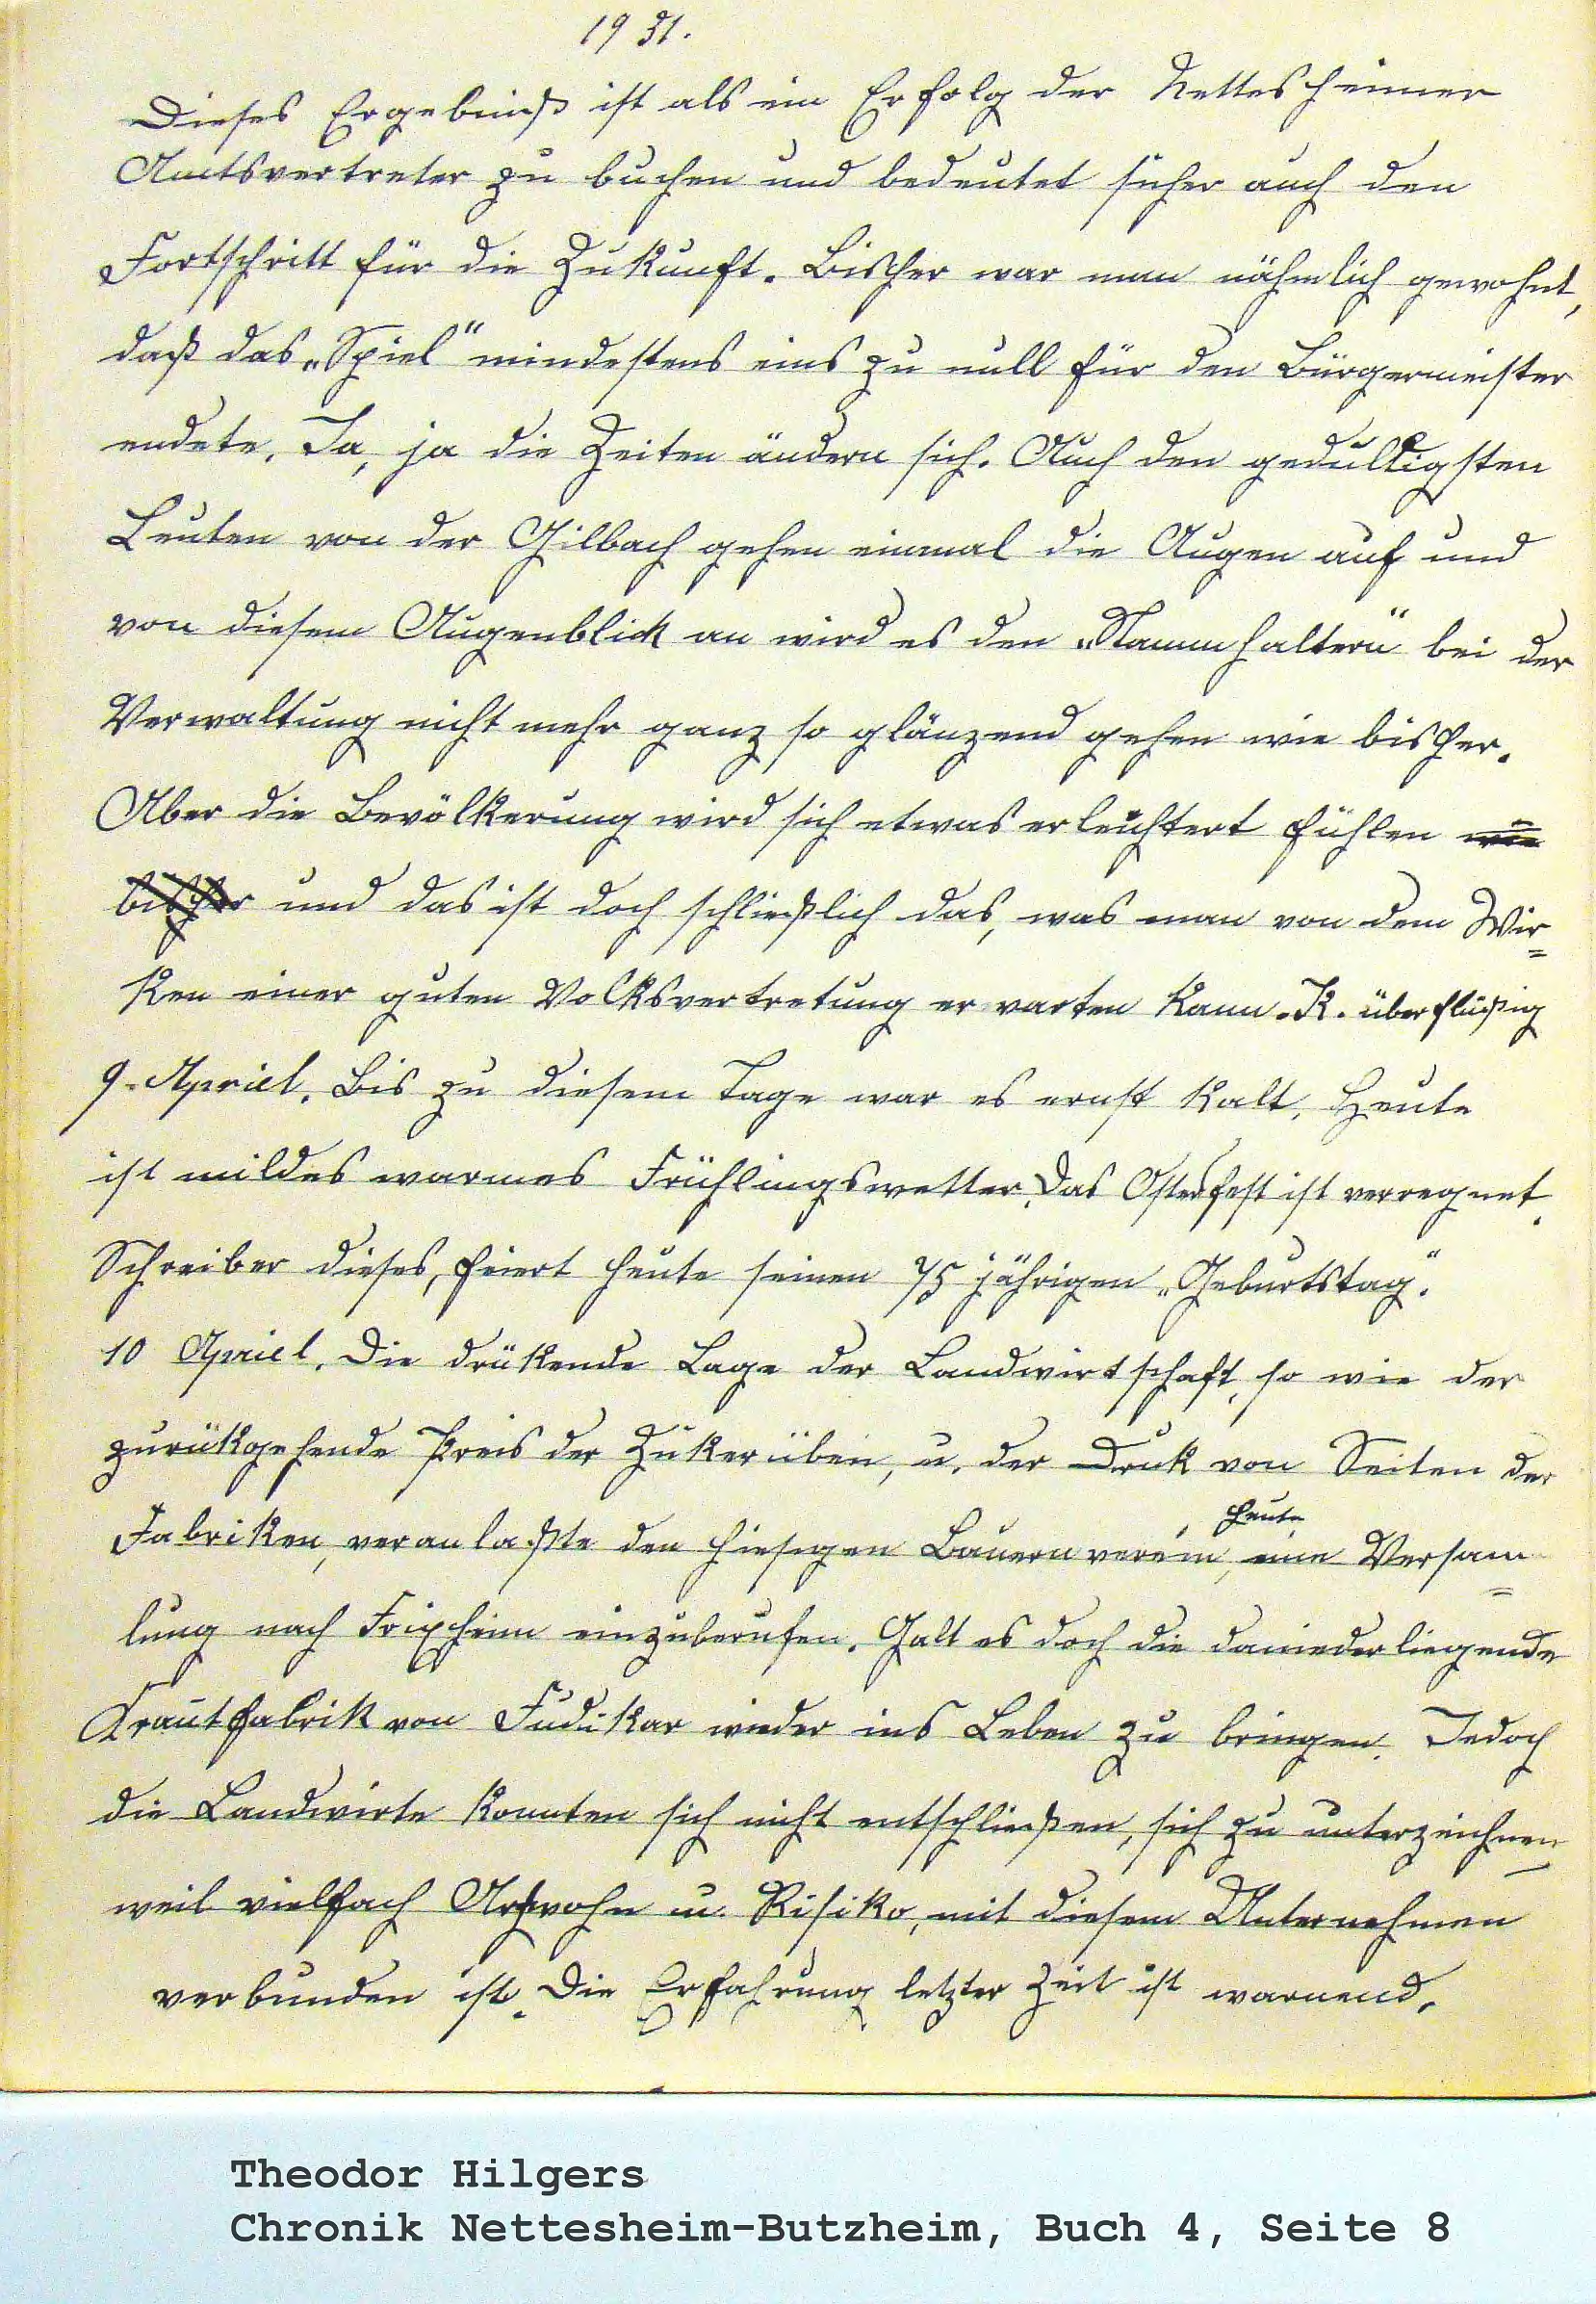 1931.
Dieses Ergebniß ist als ein Erfolg der Nettesheimer
Amtsvertreter zu buchen und bedeutet sicher auch den
Fortschritt für die Zukunft. Bisher war man nähmlich gewohnt,
daß das „Spiel" mindestens eins zu null für den Bürgermeister
endete. Ja, ja die Zeiten ändern sich. Auch den geduldigsten
Leuten von der Gilbach gehen einmal die Augen auf und
von diesem Augenblick an wird es den „Stammhaltern" bei der
Verwaltung nicht mehr ganz so glänzend gehen wie bisher.
Aber die Bevölkerung wird sich etwas erleichtert fühlen wie
bisher und das ist doch schließlich das, was man von dem Wir=
ken einer guten Volksvertretung erwarten kann. K. überflüßig
9. Apriel. Bis zu diesem Tage war es ernst kalt. Heute
ist mildes warmes Frühlingswetter. Das Osterfest ist verregnet.
Schreiber dieses, feiert heute seinen 75 jährigen „Geburtstag".
10 Apriel. Die drükende Lage der Landwirtschaft, so wie der
zurükgehende Preis der Zukerüben, u. der Druk von Seiten der
Fabriken, veranlaßte den hiesigen Bauernverein, heute eine Versam=
lung nach Frixheim einzuberufen. Galt es doch die daniederliegende
Krautfabrik von Fudikar wieder ins Leben zu bringen. Jedoch
die Landwirte konnten sich nicht entschließen, sich zu unterzeichnen
weil vielfach Argwohn u. Risiko, mit diesem Unternehmen
verbunden ist. Die Erfahrung letzter Zeit ist warnend.
Theodor Hilgers
Chronik Nettesheim-Butzheim, Buch 4, Seite 8